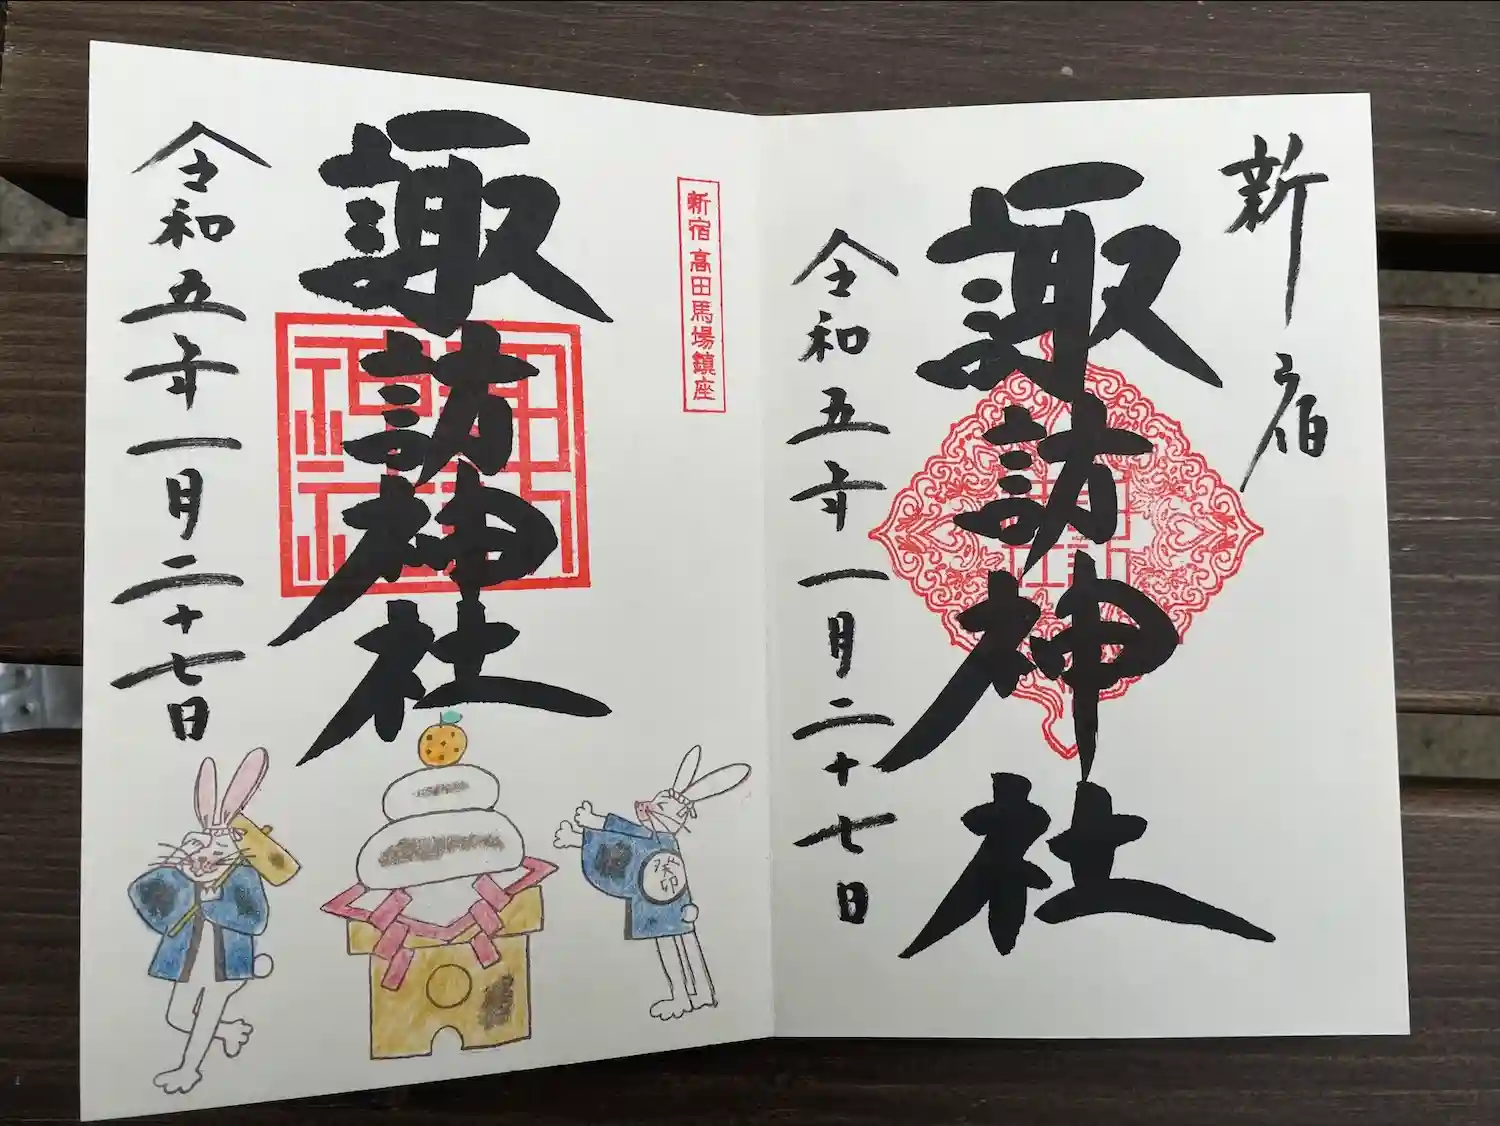 新宿
諏訪神社
令和五年一月二十七日
新宿 高田馬場鎮座
諏訪神社
令和五年一月二十七日
癸卯